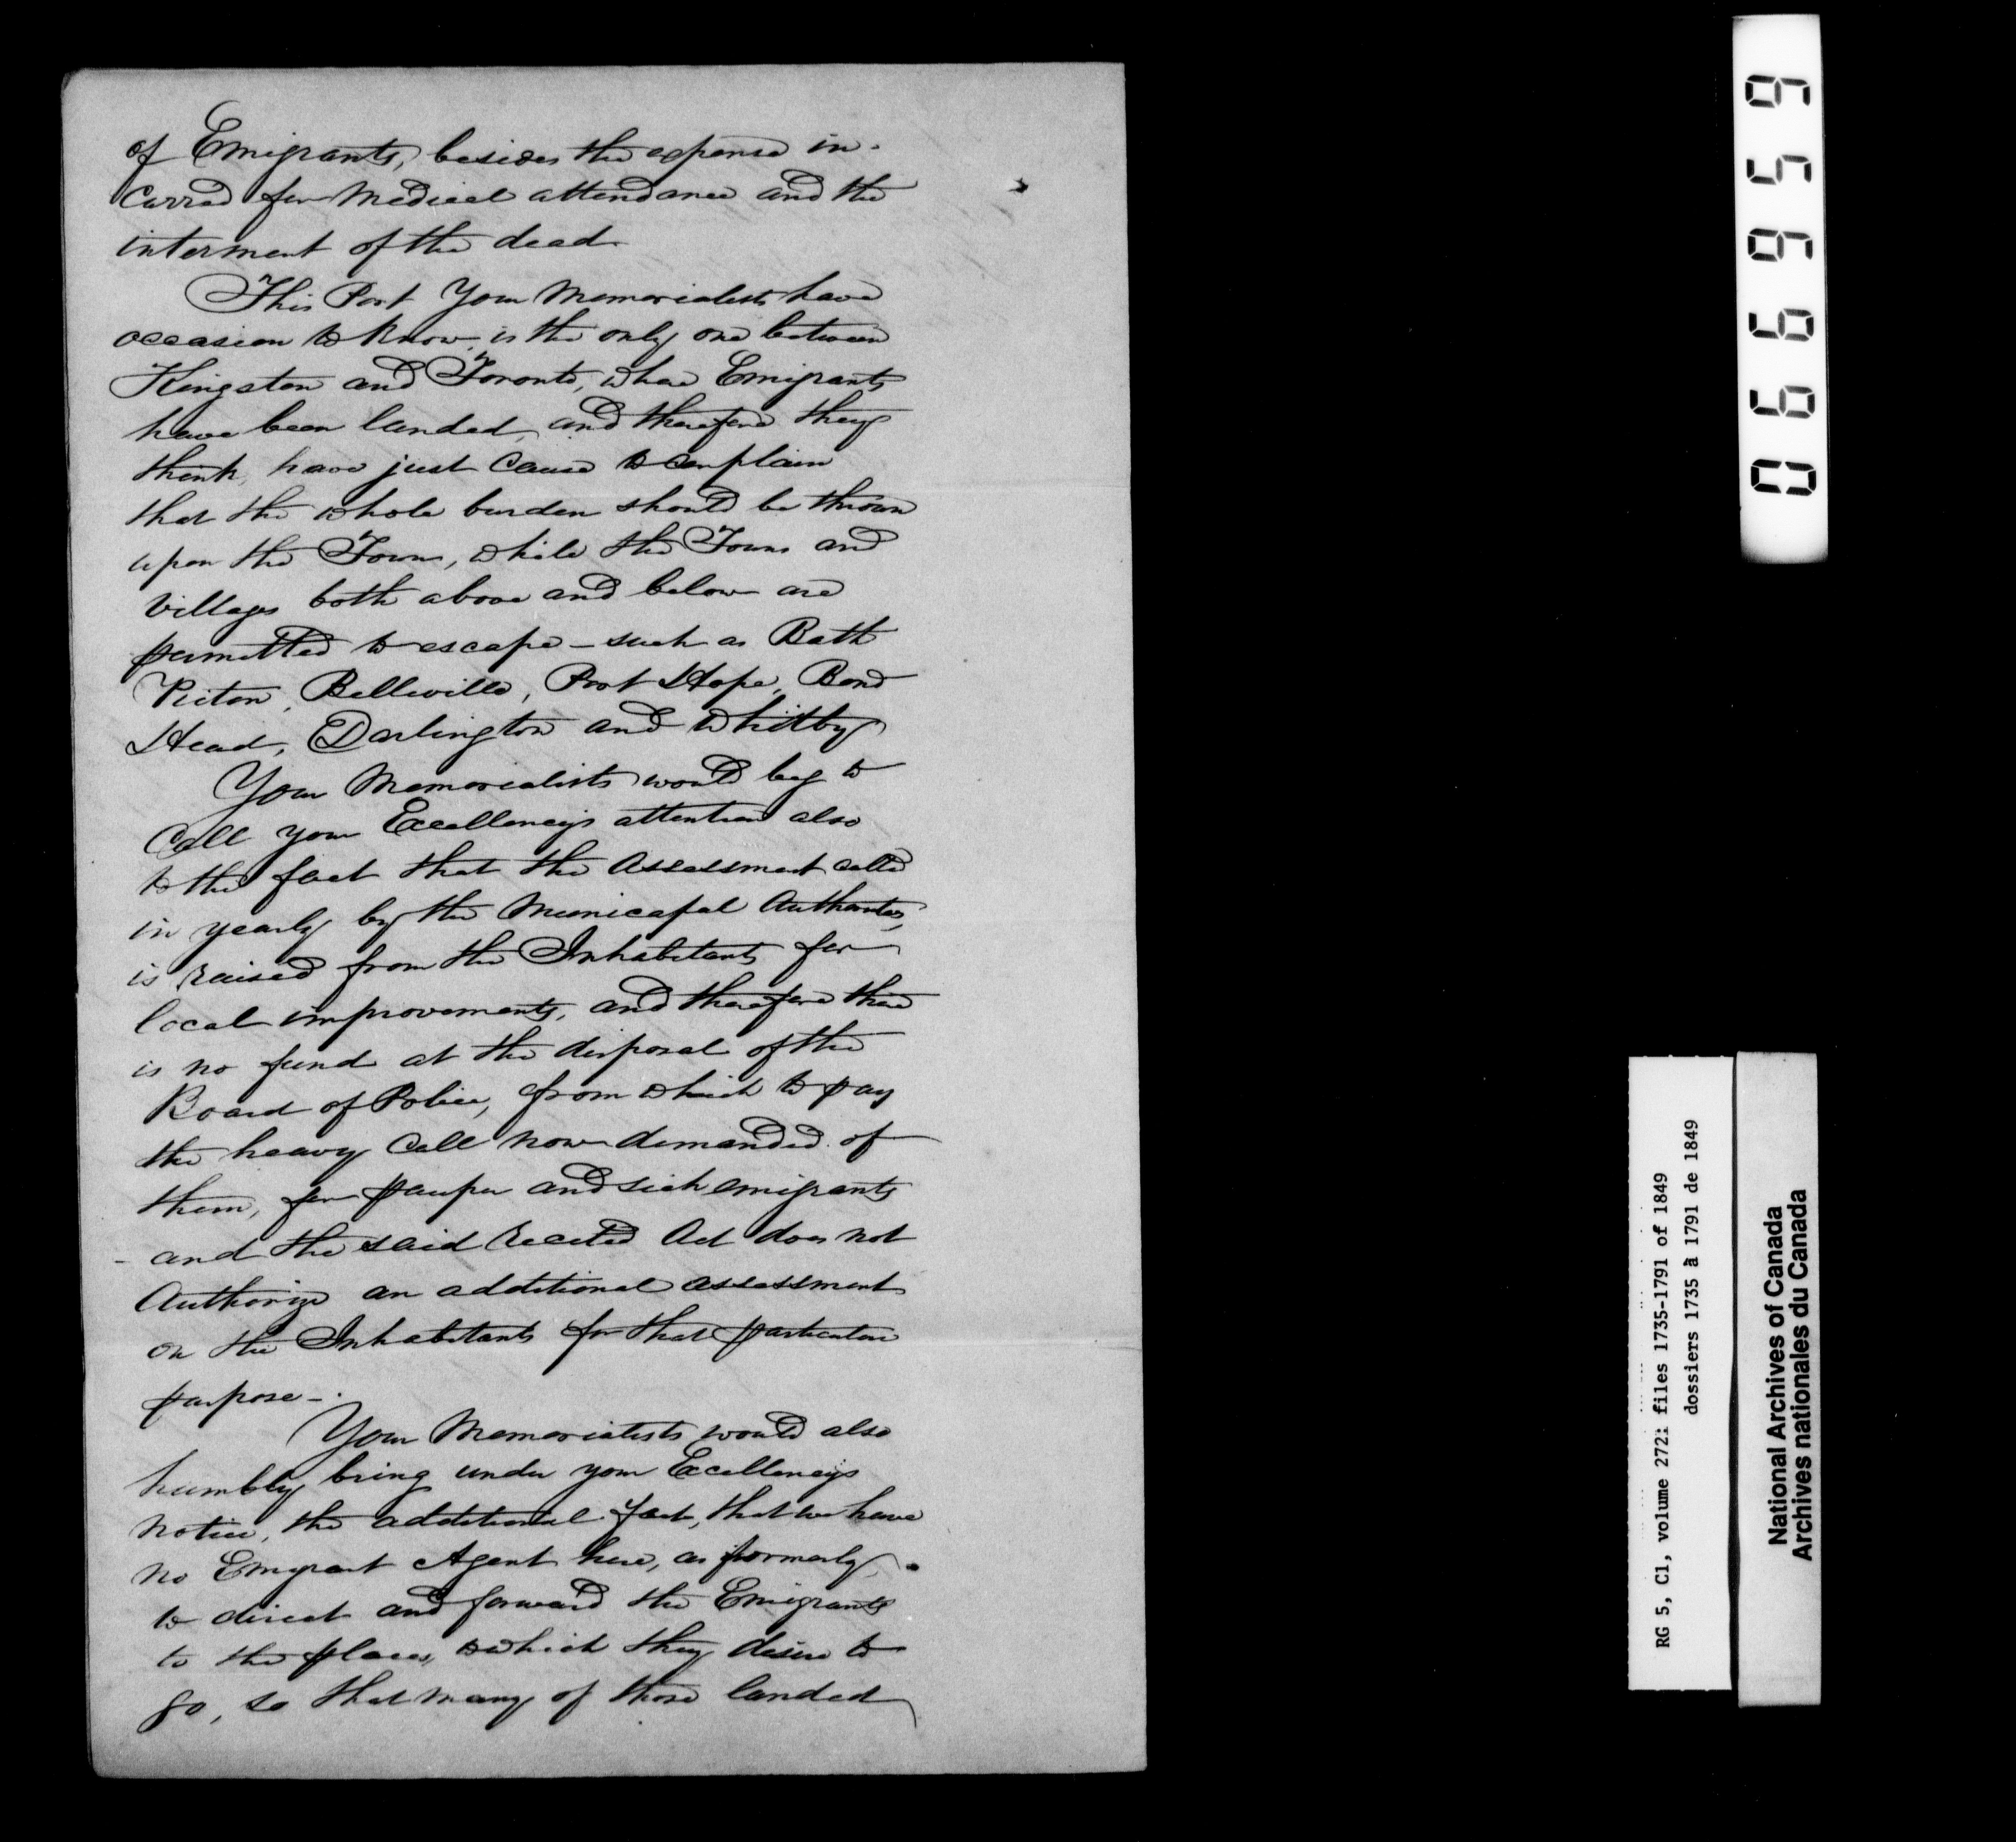 of Emigrants, besides the expense in-
curred for Medical attendance and the
interment of the dead
This Port Your Memorialists have
occasion to know, is the only one between
Kingston and Toronto, where Emigrants
have been landed, and therefore they
think, have just Cause to complain
that the whole burden should be thrown
upon the Town, while the Towns and
Villages both above and below are
permitted to escape - such as Bath
Picton, Belleville, Port Hope, Bond
Head, Darlington and Whitby
Your Memorialists would beg to
Call your Excellency's attention also
to the fact that the Assessment called
in yearly by the Municapal Authorites,
is raised from the Inhabitants for
local improvements, and therefore there
is no fund at the disposal of the
Board of Police, from which to pay
the heavy Call now demanded of
them, for pauper and sick emigrants
- and the said recited Act does not
Authorize an additional assessment
on the Inhabitants for that particular
purpose -.
Your Memorialists would also
humbly bring under your Excellency's
notice, the additional fact, that we have
no Emigrant Agent here, as formerly,
to direct and forward the Emigrants
to the places, to which they desire to
go, so that many of those landed
066959
RG 5, C1, volume 272: files 1735-1791 of 1849
dossiers 1735 à 1791 de 1849
National Archives of Canada
Archives nationales du Canada